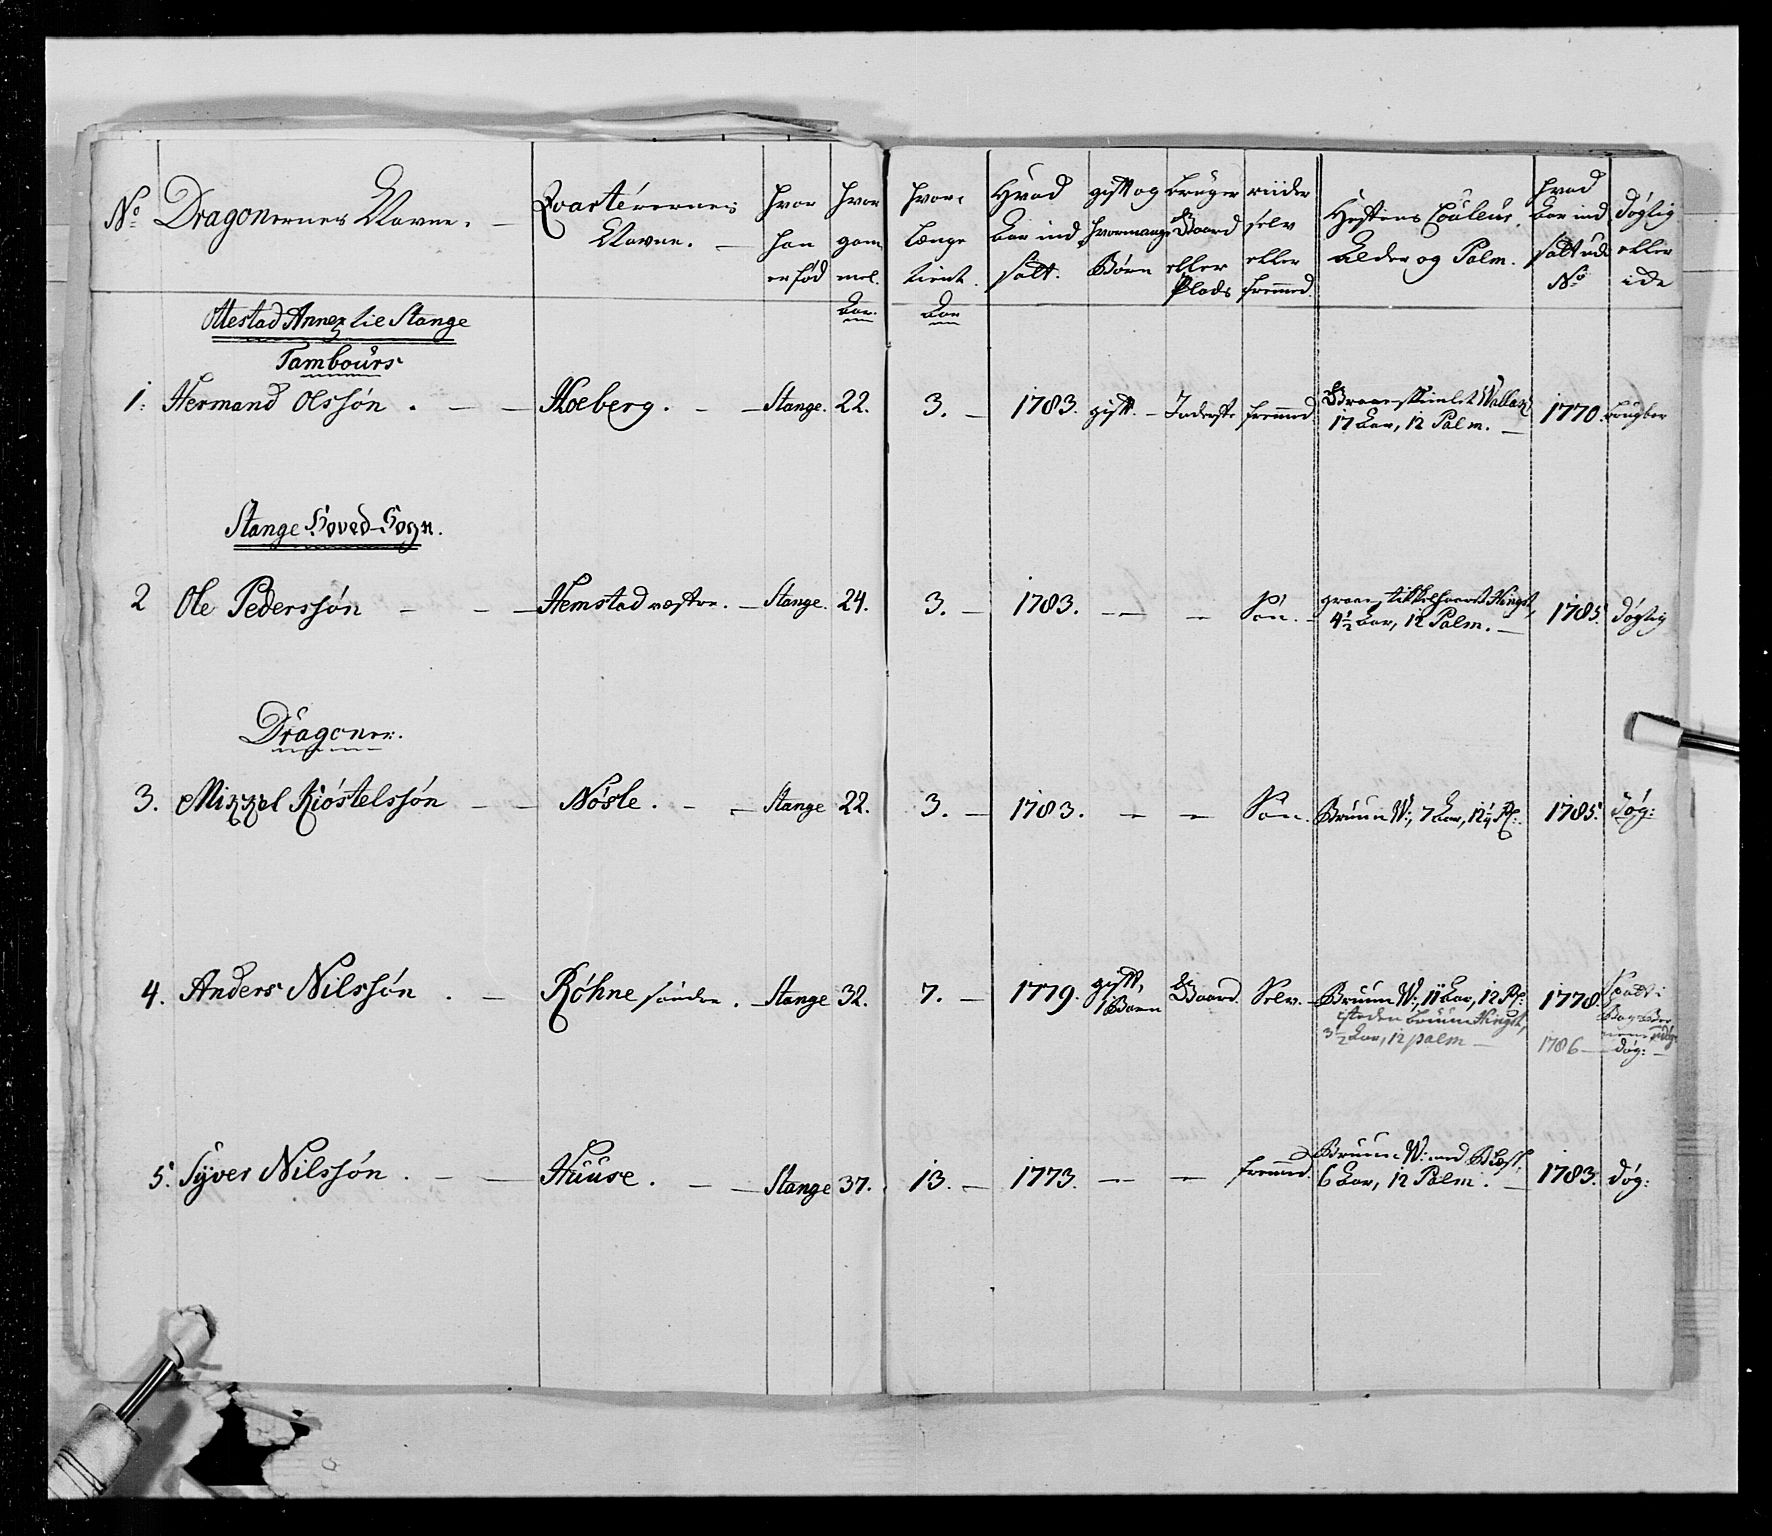 No Dragonernes Navne. Qvarterernes Navne. hvor han er fød hvor gam mel. Aar. hvor længe tient. Aar Hvad Aar ind sadt. gift og hvormange Børn bruger Gaard eller Plads riider selv eller fremmed. Hestens Couleur, Alder og Palm. hvad Aar ind sadt ude No døgtig eller ide
Ottestad Annex tie Stange
Tambours
1. Hermand Olssøn. Hoeberg. Stange. 22. 3. 1783. gift. Inderste fremmed. Graaeskimlet Wallak
17 Aar, 12 Palm. 1770. brugbar
Stange Hoved-Sogn.
2 Ole Pederssøn Hemstad vestre. Stange. 24. 3. 1783. Søn. graae stikkelhaaret Hingst,
4½ Aar, 12 Palm. 1785. døgtig
Dragoner.
3. Mikkel Kióstelssøn Nósle. Stange 22. 3. 1783. Søn. Bruun W:, 7 Aar, 12¼ P: 1785. døg:
4. Anders Nilssøn. Røhne søndre. Stange 32. 7. 1779. gift, 1 Barn Gaard. Selv. Bruun W:, 11 Aar, 12 P: 1778. Spadt i
isteden bruun Hingst,
3½ Aar, 12 palm 1786 døg:
5. Syver Nilssøn. Huuse. Stange 37. 13. 1773. fremmed. Bruun W: med Blest,
6 Aar, 12 Palm. 1783. døg: